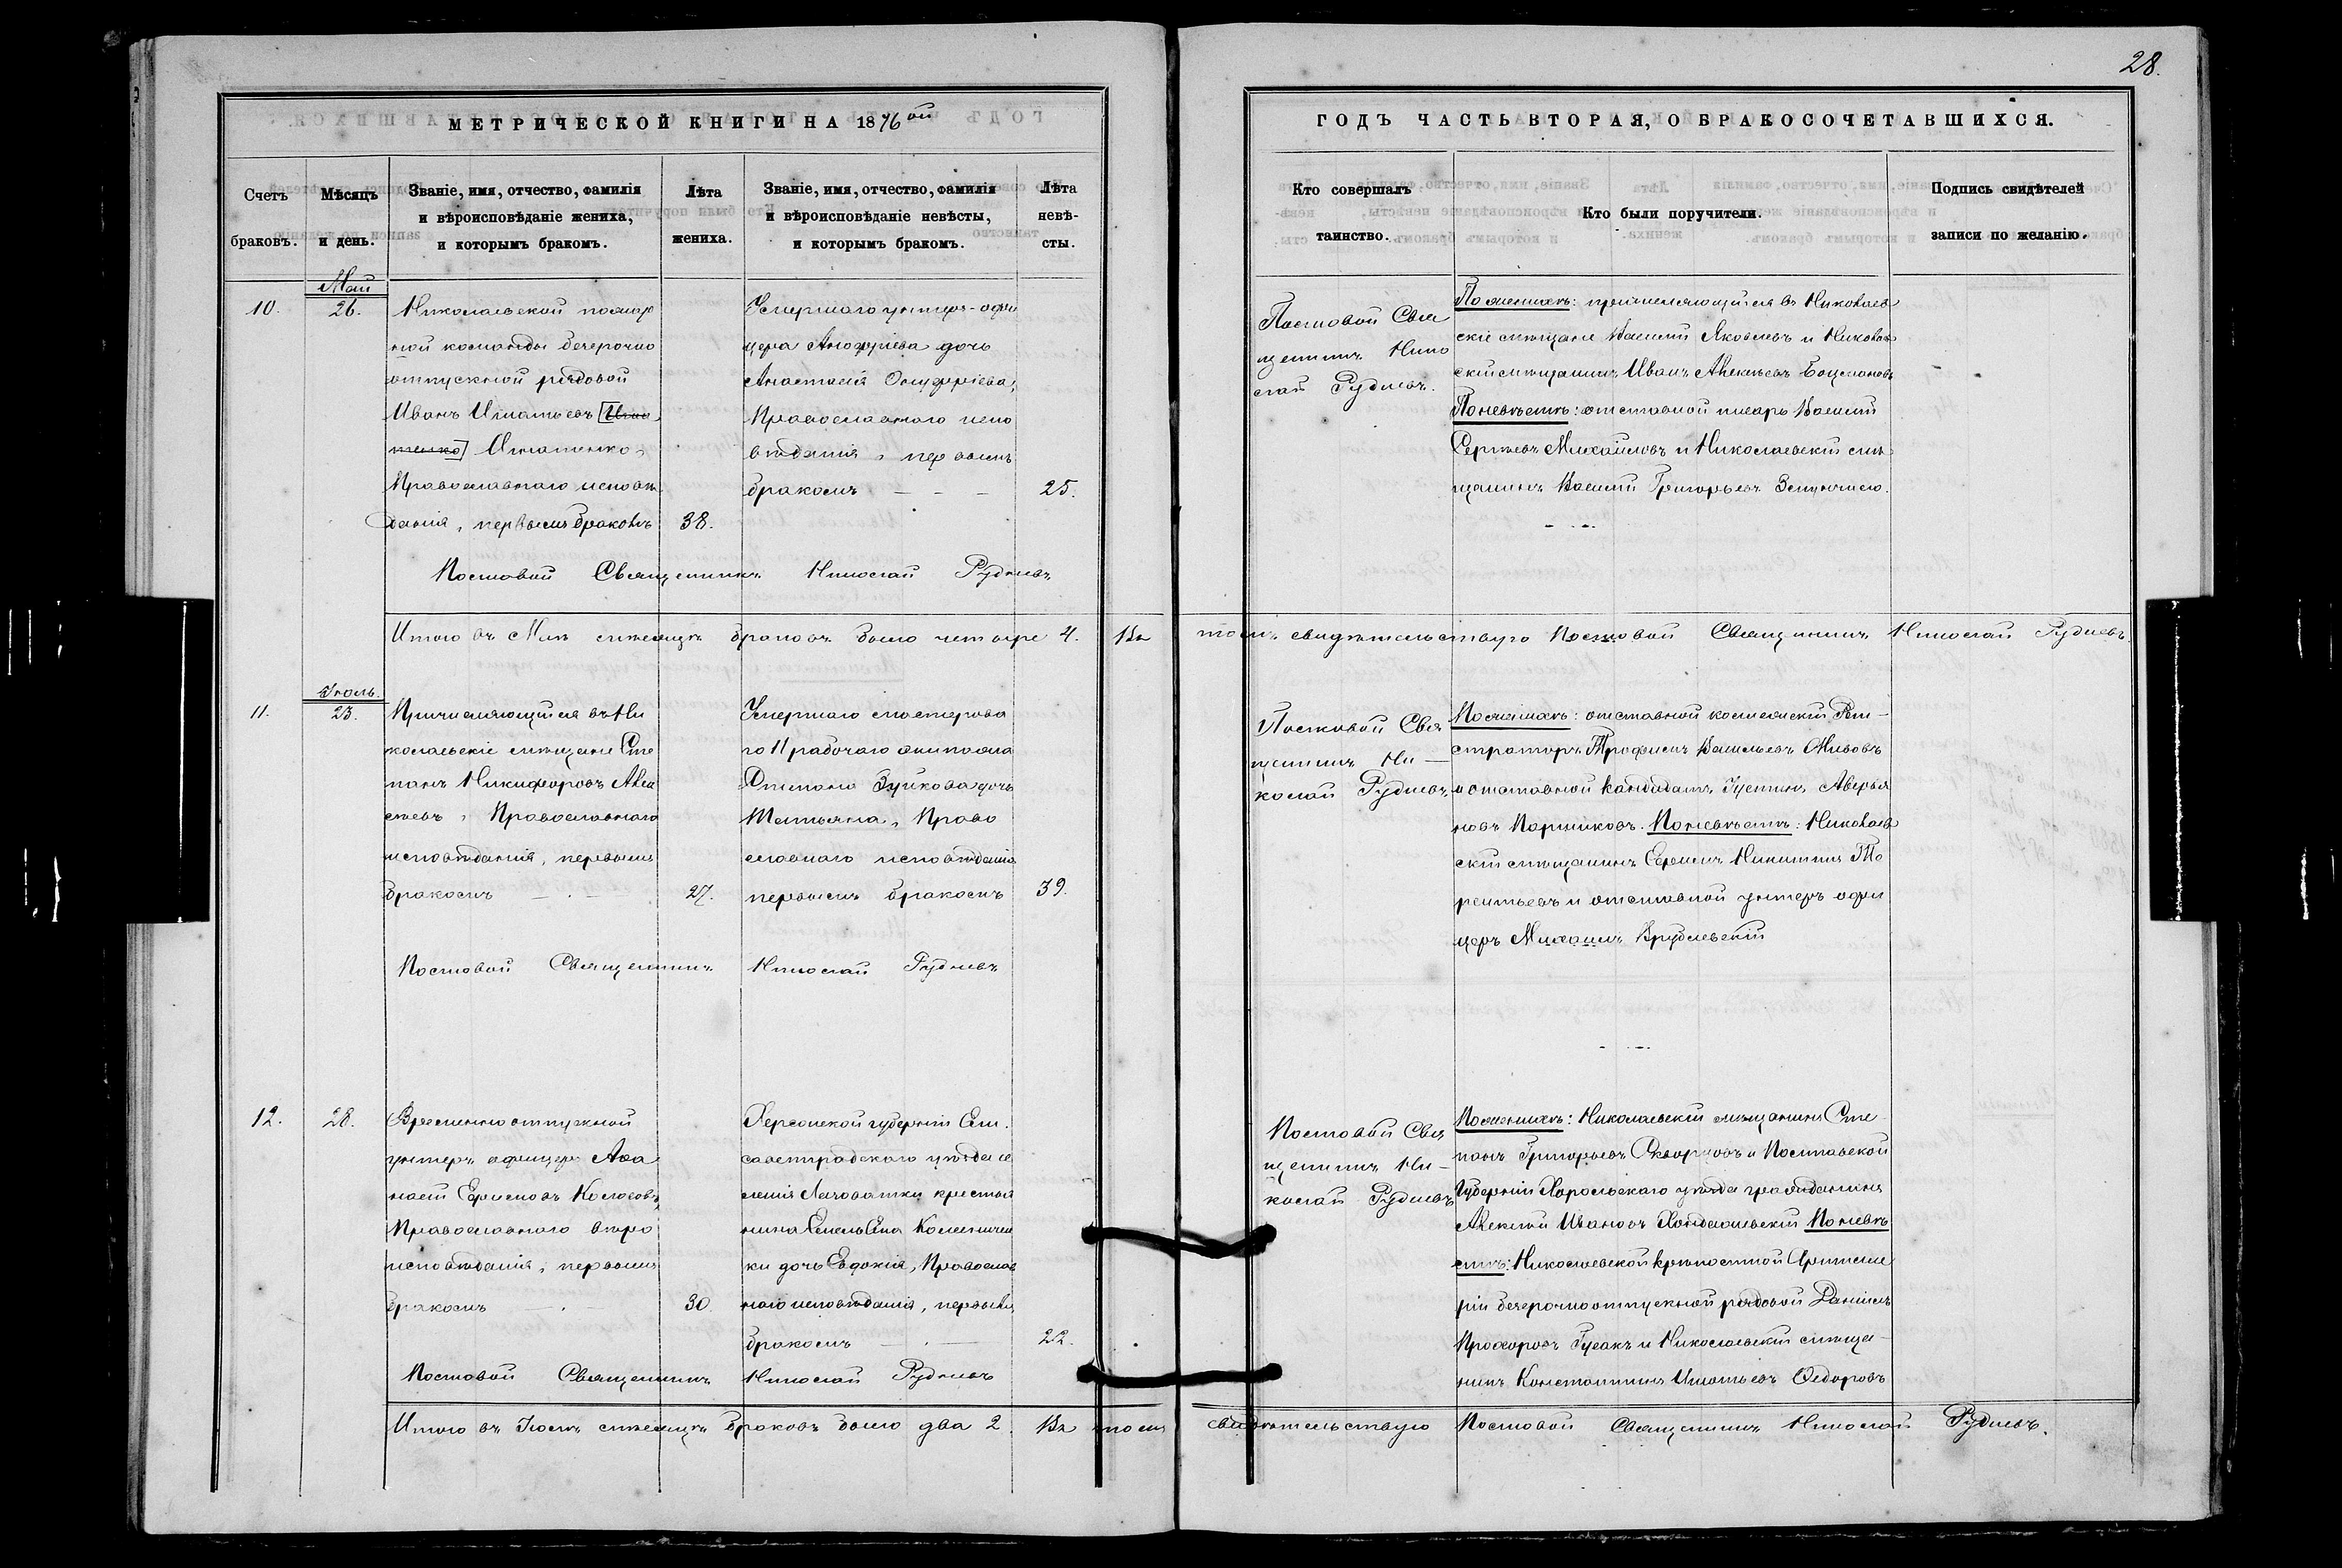 28.
МЕТРИЧЕСКОЙ КНИГИ НА 1876ой
ГОДЪ ЧАСТЬ ВТОРАЯ, О БРАКОСОЧЕТАВШИХСЯ.
Счетъ браковъ.
Мѣсяцъ и день.
Званіе, имя, отчество, фамилія
и вѣроисповѣданіе жениха,
и которымъ бракомъ.
Лѣта
жениха.
Званіе, имя, отчество, фамилія
и вѣроисповѣданіе невѣсты,
и которымъ бракомъ.
Лѣта
невѣ-
сты.
Кто совершалъ
таинство.
Кто были поручители.
Подпись свидѣтелей
записи по желанію.
Май
10.
26.
Николаевской пожар
ной команды безсрочно
отпускной рядовой
Иванъ Игнатьевъ
Игнатенко,
Православнаго исповѣ
данія, первымъ бракомъ
38.
Умершаго унтеръ-офи
цера Анофріева дочь
Анастасія Онуфріева,
Православнаго испо
вѣданія, первымъ
бракомъ
25.
Постовой Свя
щенникъ Нико
лай Рудневъ.
По женихѣ: причисляющійся въ Николаев
скіе мѣщане Василій Яковлевъ и Николаев
скій мѣщанинъ Иванъ Алексѣевъ Боцмановъ
По невѣстѣ: отставной писарь Василій
Сергѣевъ Михайловъ и Николаевскій мѣ
щанинъ Василій Григорьевъ
Постовой Священникъ Николай Рудневъ
Итого въ Маѣ мѣсяцѣ браковъ было четыре 4. Въ томъ свидѣтельствую Постовой Священникъ Николай Рудневъ.
Іюль.
11.
23.
Причисляющійся въ Ни
колаевскіе мѣщане Сте
панъ Никифоровъ Алек
сѣевъ, Православнаго
исповѣданія, первымъ
бракомъ
27.
Умершаго мастерова
го 11 рабочаго экипажа
Степана Зуйкова дочь
Татьяна, Право
славнаго исповѣданія
первымъ бракомъ
39.
Постовой Свя
щенникъ Ни-
колай Рудневъ
По женихѣ: отставной коллежскій Реги-
страторъ Трофимъ Васильевъ
и отставной кандидатъ Іустинъ Аверья
новъ Портниковъ. По невѣстѣ: Николаев
скій мѣщанинъ Ефимъ Никитинъ Те
рентьевъ и отставной унтеръ офи
церъ Михаилъ Врублевскій
Постовой Священникъ Николай Рудневъ
12.
28.
Временно отпускной
унтеръ офицеръ Аѳа
насій Ефимовъ Колосовъ,
Православнаго вѣро
исповѣданія, первымъ
бракомъ
30.
Херсонской губерніи Ели
саветградскаго уѣзда се
ленія Лаговатки крестья
нина Емельяна Коленичен
ки дочь Евдокія, Православ
наго исповѣданія, первымъ
бракомъ
22.
Постовой Свя
щенникъ Ни-
колай Рудневъ
По женихѣ: Николаевскій мѣщанинъ Сте-
панъ Григорьевъ Скворцовъ и Полтавской
Губерніи Хорольскаго уѣзда гражданинъ
Алексѣй Ивановъ По невѣ
стѣ: Николаевской крѣпостной Артилле
ріи безсрочно отпускной рядовой Даніилъ
Прохоровъ Гусакъ и Николаевскій мѣща-
нинъ Константинъ Игнатьевъ Ѳедоровъ
Постовой Священникъ Николай Рудневъ
Итого въ Іюлѣ мѣсяцѣ браковъ было два 2. Въ томъ свидѣтельствую Постовой Священникъ Николай Рудневъ.